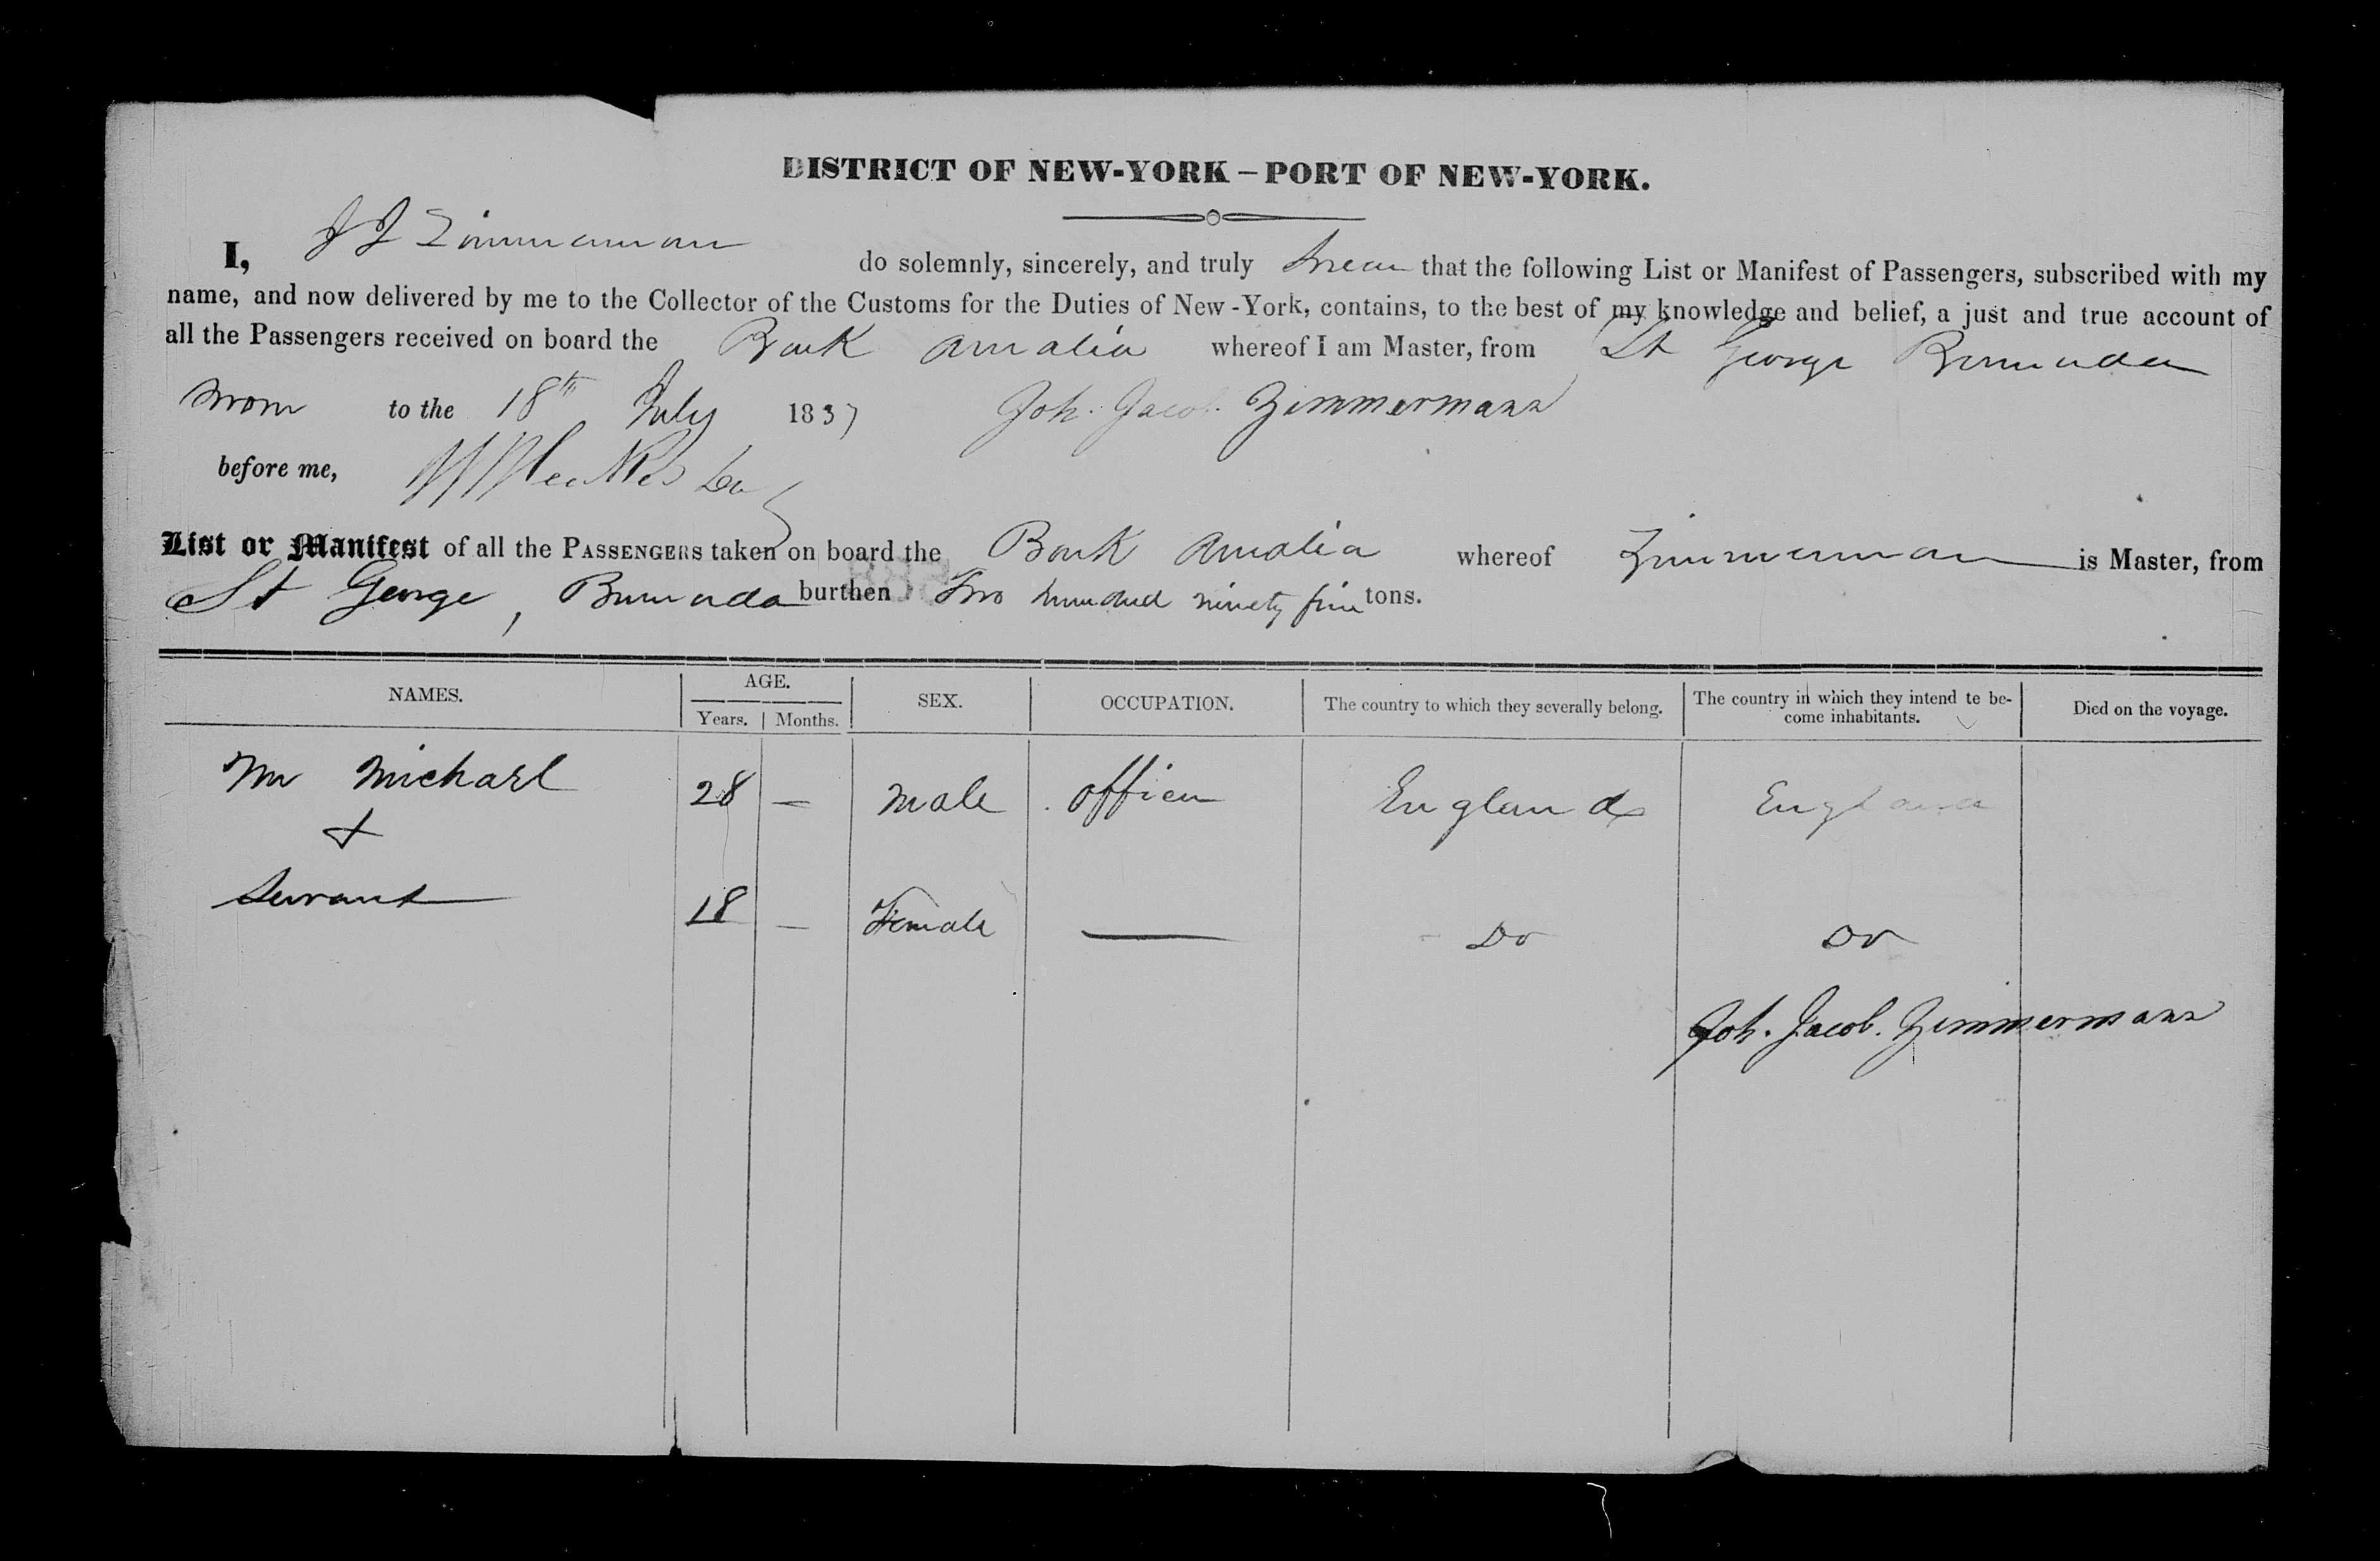 DISTRICT OF NEW-YORK – PORT OF NEW-YORK.
I, J J Zimmerman do solemnly, sincerely, and truly Swear that the following List or Manifest of Passengers, subscribed with my
name, and now delivered by me to the Collector of the Customs for the Duties of New-York, contains, to the best of my knowledge and belief, a just and true account of
all the Passengers received on board the Bark Amalia whereof I am Master, from St George Bermuda
Sworn to the 18th July 1837 Joh. Jacob. Zimmermann
before me,
List or Manifest of all the PASSENGERS taken on board the Bark Amalia whereof Zimmerman is Master, from
St George, Bermuda burthen Two hundred ninety five tons.
NAMES. AGE. Years. Months. SEX. OCCUPATION. The country to which they severally belong. The country in which they intend to become inhabitants. Died on the voyage.
Mr Michael 28 — Male officer England England
&
Servant 18 — Female — Do Do
Joh. Jacob. Zimmermann